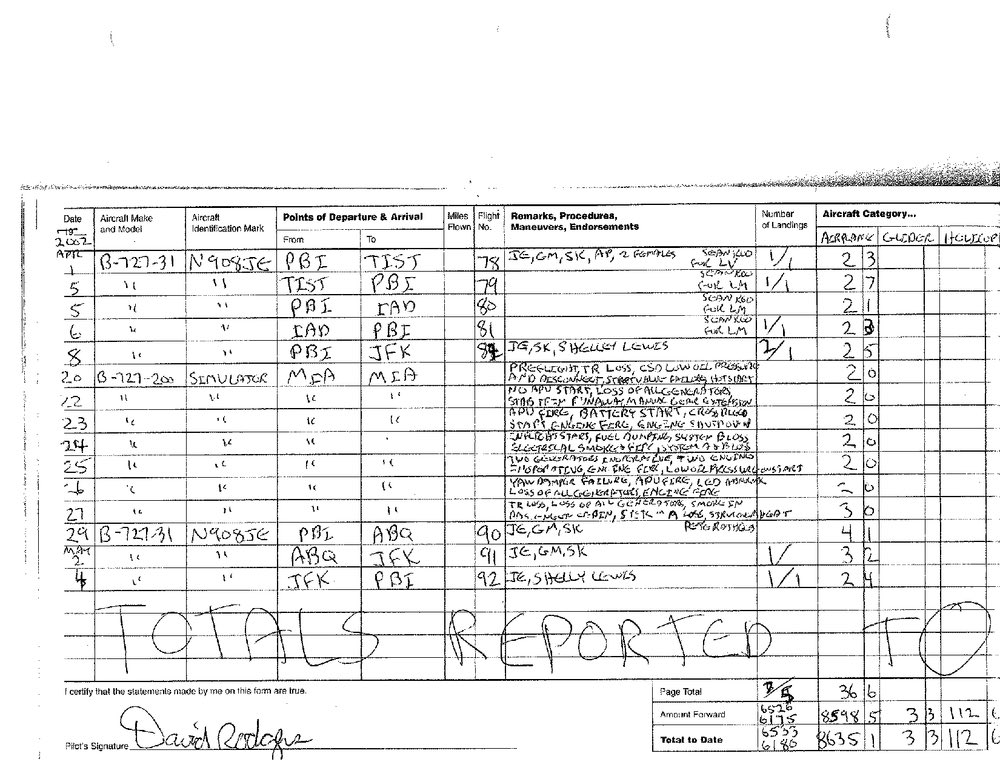 Date Aircraft Make and Model Aircraft Identification Mark Points of Departure & Arrival Miles Flown Flight No. Remarks, Procedures, Maneuvers, Endorsements Number of Landings Aircraft Category...
2002 From To AIRPLANE GLIDER
APR 1 B-727-31 N908JE PBI TIST 78 JE, GM, SK, AP, 2 FEMALES 1/1 2 3
5 " " TIST PBI 79 FOR LM 1/1 2 7
5 " " PBI IAD 80 FOR LM 2 1
6 " " IAD PBI 81 FOR LM 1/1 2 3
8 " " PBI JFK JE, SK, SHELLEY LEWIS 2/1 2 5
20 B-727-200 SIMULATOR MIA MIA PREFLIGHT, TR LOSS, CSD LOW OIL PRESSURE AND DISCONNECT, START VALVE FAILURE, HOT START 2 0
22 " " " " NO APU START, LOSS OF ALL GENERATORS, STAB TRIM RUNAWAY, MANUAL GEAR EXTENSION 2 0
23 " " " " APU FIRE, BATTERY START, CROSS BLEED START, ENGINE FIRE, ENGINE SHUTDOWN 2 0
24 " " " INFLIGHT START, FUEL DUMPING, SYSTEM B LOSS ELECTRICAL SMOKE & FIRE, SYSTEM A & B LOSS 2 0
25 " " " " TWO GENERATORS INOPERATIVE, TWO ENGINE INOPERATIVE, ENGINE FIRE, LOW OIL PRESSURE ON START 2 0
" " " " YAW DAMPER FAILURE, APU FIRE, LOSS OF ALL GENERATORS, ENGINE FIRE 2 0
27 " " " " TR LOSS, LOSS OF ALL GENERATORS, SMOKE IN 3 0
29 B-727-31 N908JE PBI ABQ 90 JE, GM, SK 4 1
MAY 2 " " ABQ JFK 91 JE, GM, SK 1/ 3 2
4 " " JFK PBI 92 JE, SHELLY LEWIS 1/1 2 4
TOTALS REPORTED TO
I certify that the statements made by me on this form are true. Page Total 36 6
Amount Forward 6526 6175 8598 5 3 3 112
Pilot's Signature David Rodgers Total to Date 6533 6180 8635 1 3 3 112